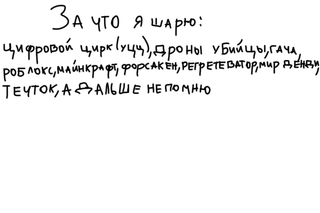 За что я шарю:
цифровой цирк(уцц),дроны убийцы,гача,
роблокс,майнкрафт,форсакен,регретеватор,мир денди,
течток,а дальше не помню